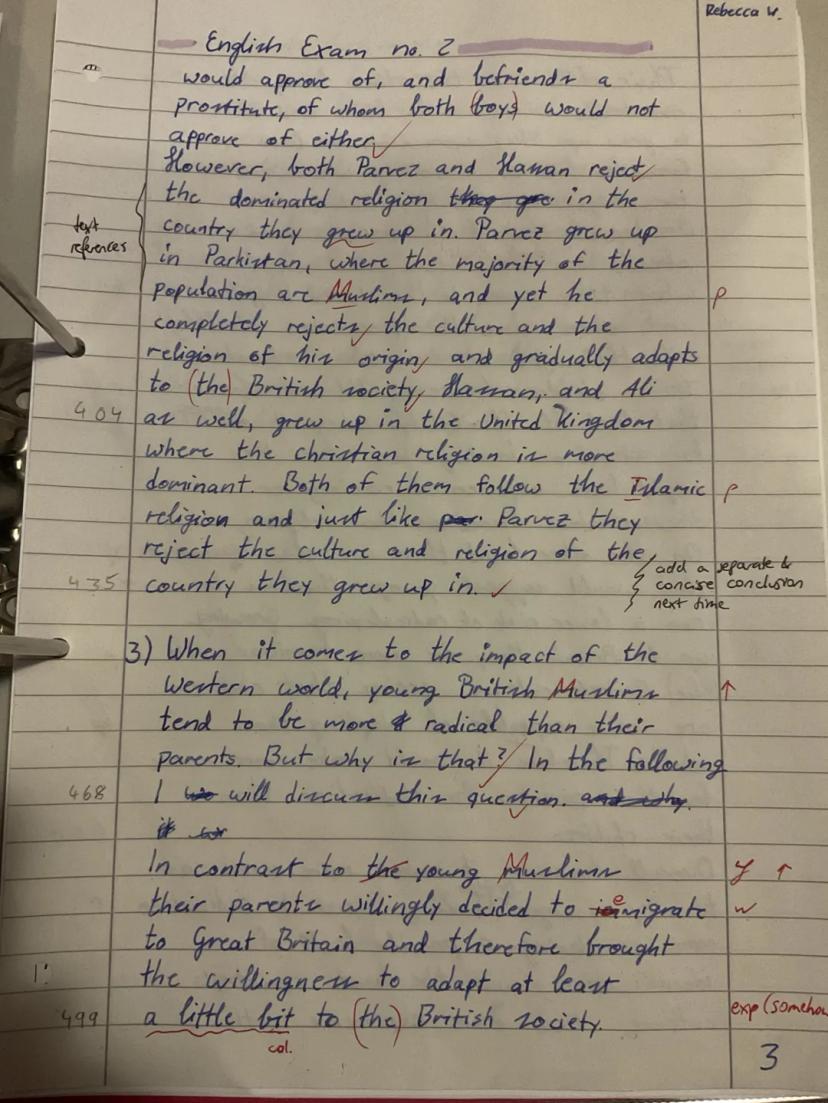 Rebecca W.
English Exam no. 2
would approve of, and befriends a
prostitute, of whom both (boys) would not
approve of either.
However, both Parvez and Hassan reject
the dominated religion they gre in the
text
references
country they grew up in. Parvez grew up
in Parkistan, where the majority of the
population are Muslims, and yet he
P
completely rejects the culture and the
religion of his origin and gradually adapts
to (the) British society, Hassan, and Ali
404
as well, grew up in the United Kingdom
where the christian religion is more
dominant. Both of them follow the Islamic
P
religion and just like par. Parvez they
reject the culture and religion of the
435
country they grew up in.
add a separate &
concise conclusion
next time
3) When it comes to the impact of the
Western world, young British Muslims
↑
tend to be more radical than their
parents. But why is that? In the following
468
I will discuss this question. and why
it
In contrast to the young Muslims
↑
their parents willingly decided to emigrate
w
to Great Britain and therefore brought
1:
the willingness to adapt at least
499
a little bit to (the) British society.
exp (somehow
col.
3